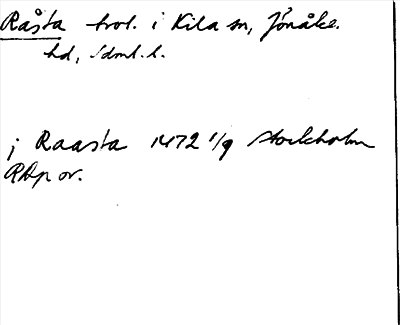 Råsta trol. i Kila sn, Jönåke.
hd, Sdml. l.
j Raasta 1472 1/9 Stockholm
RAp or.